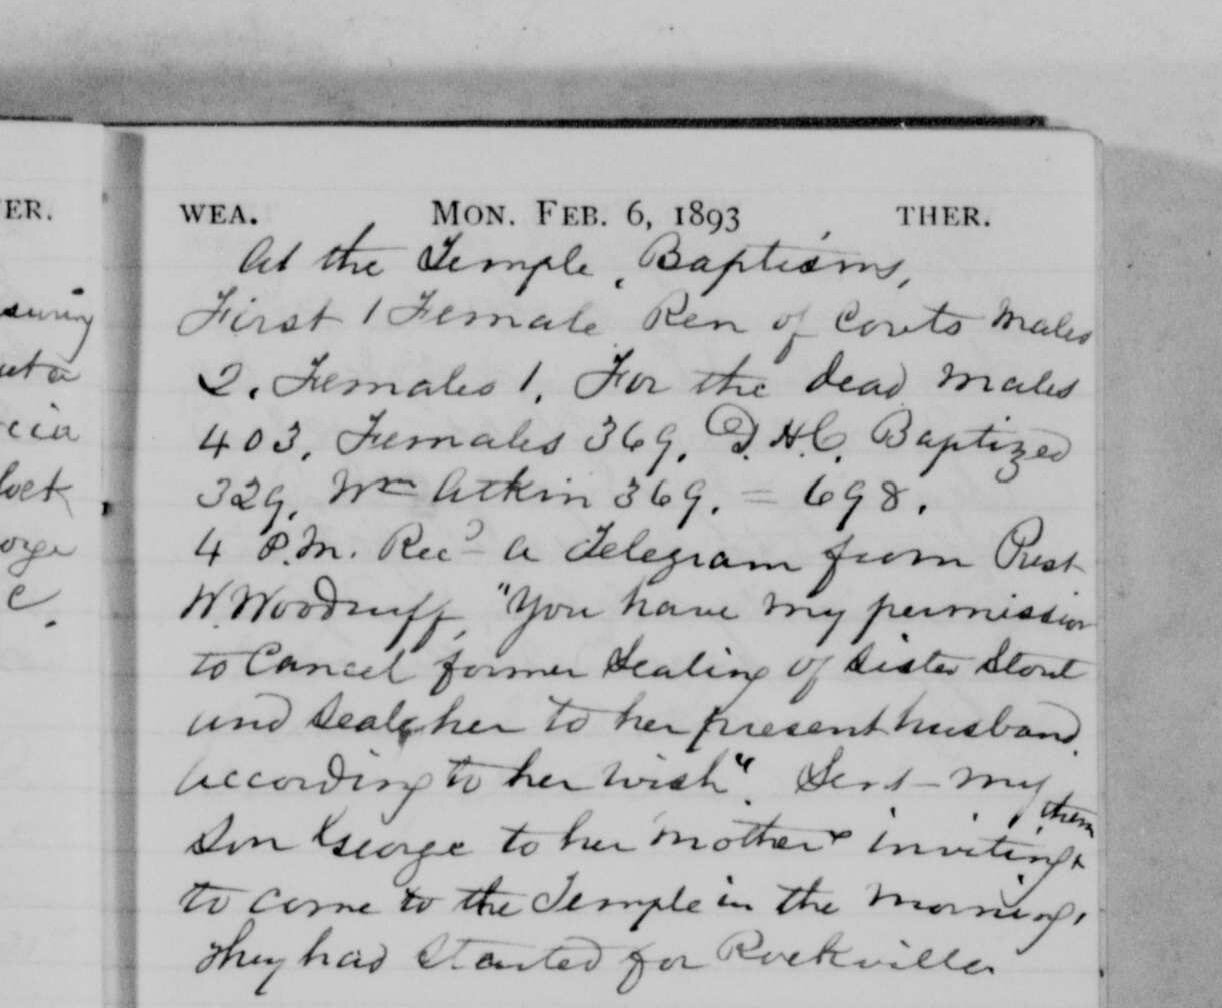 ER.
WEA. MON. FEB. 6, 1893 THER.
At the Temple, Baptisms,
First 1 Female Ren of Covts Males
2. Females 1. For the dead Males
403, Females 369. D.H.C. Baptized
329, Wm Atkin 369. = 698.
4 P.M. Recd a Telegram from Prest
W. Woodruff, "You have my permission
to Cancel former Sealing of Sister Stout
and Seal her to her present husband
according to her wish". Sent my
them
Son George to her Mother inviting
to come to the Temple in the morning,
They had Started for Rockville